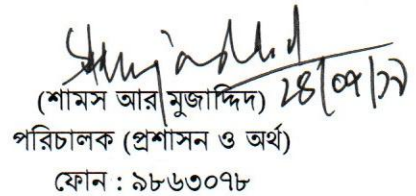 (শামস আর মুজাদ্দিদ)
পরিচালক (প্রশাসন ও অর্থ)
ফোন : ৯৮৬৩০৭৮